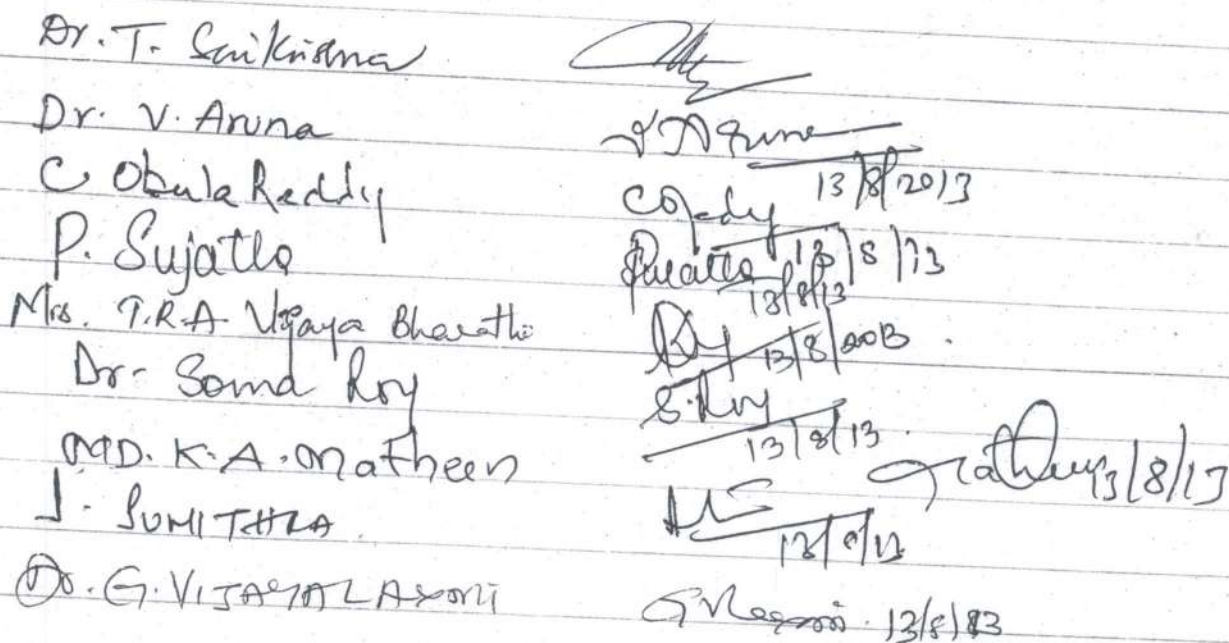 Dr. T. Sai Krishna
Dr. V. Aruna
V Aruna 13/8/2013
C. Obula Reddy
COReddy 13/8/13
P. Sujatha
PSujatha 13/8/13
Mrs. T.R.A Vijaya Bharathi
13/8/2013
Dr. Soma Roy
S. Roy 13/8/13
MD. K.A. Matheen
Matheen 13/8/13
J. SUMITHRA
13/8/13
Dr. G. VIJAYALAXMI
13/8/13